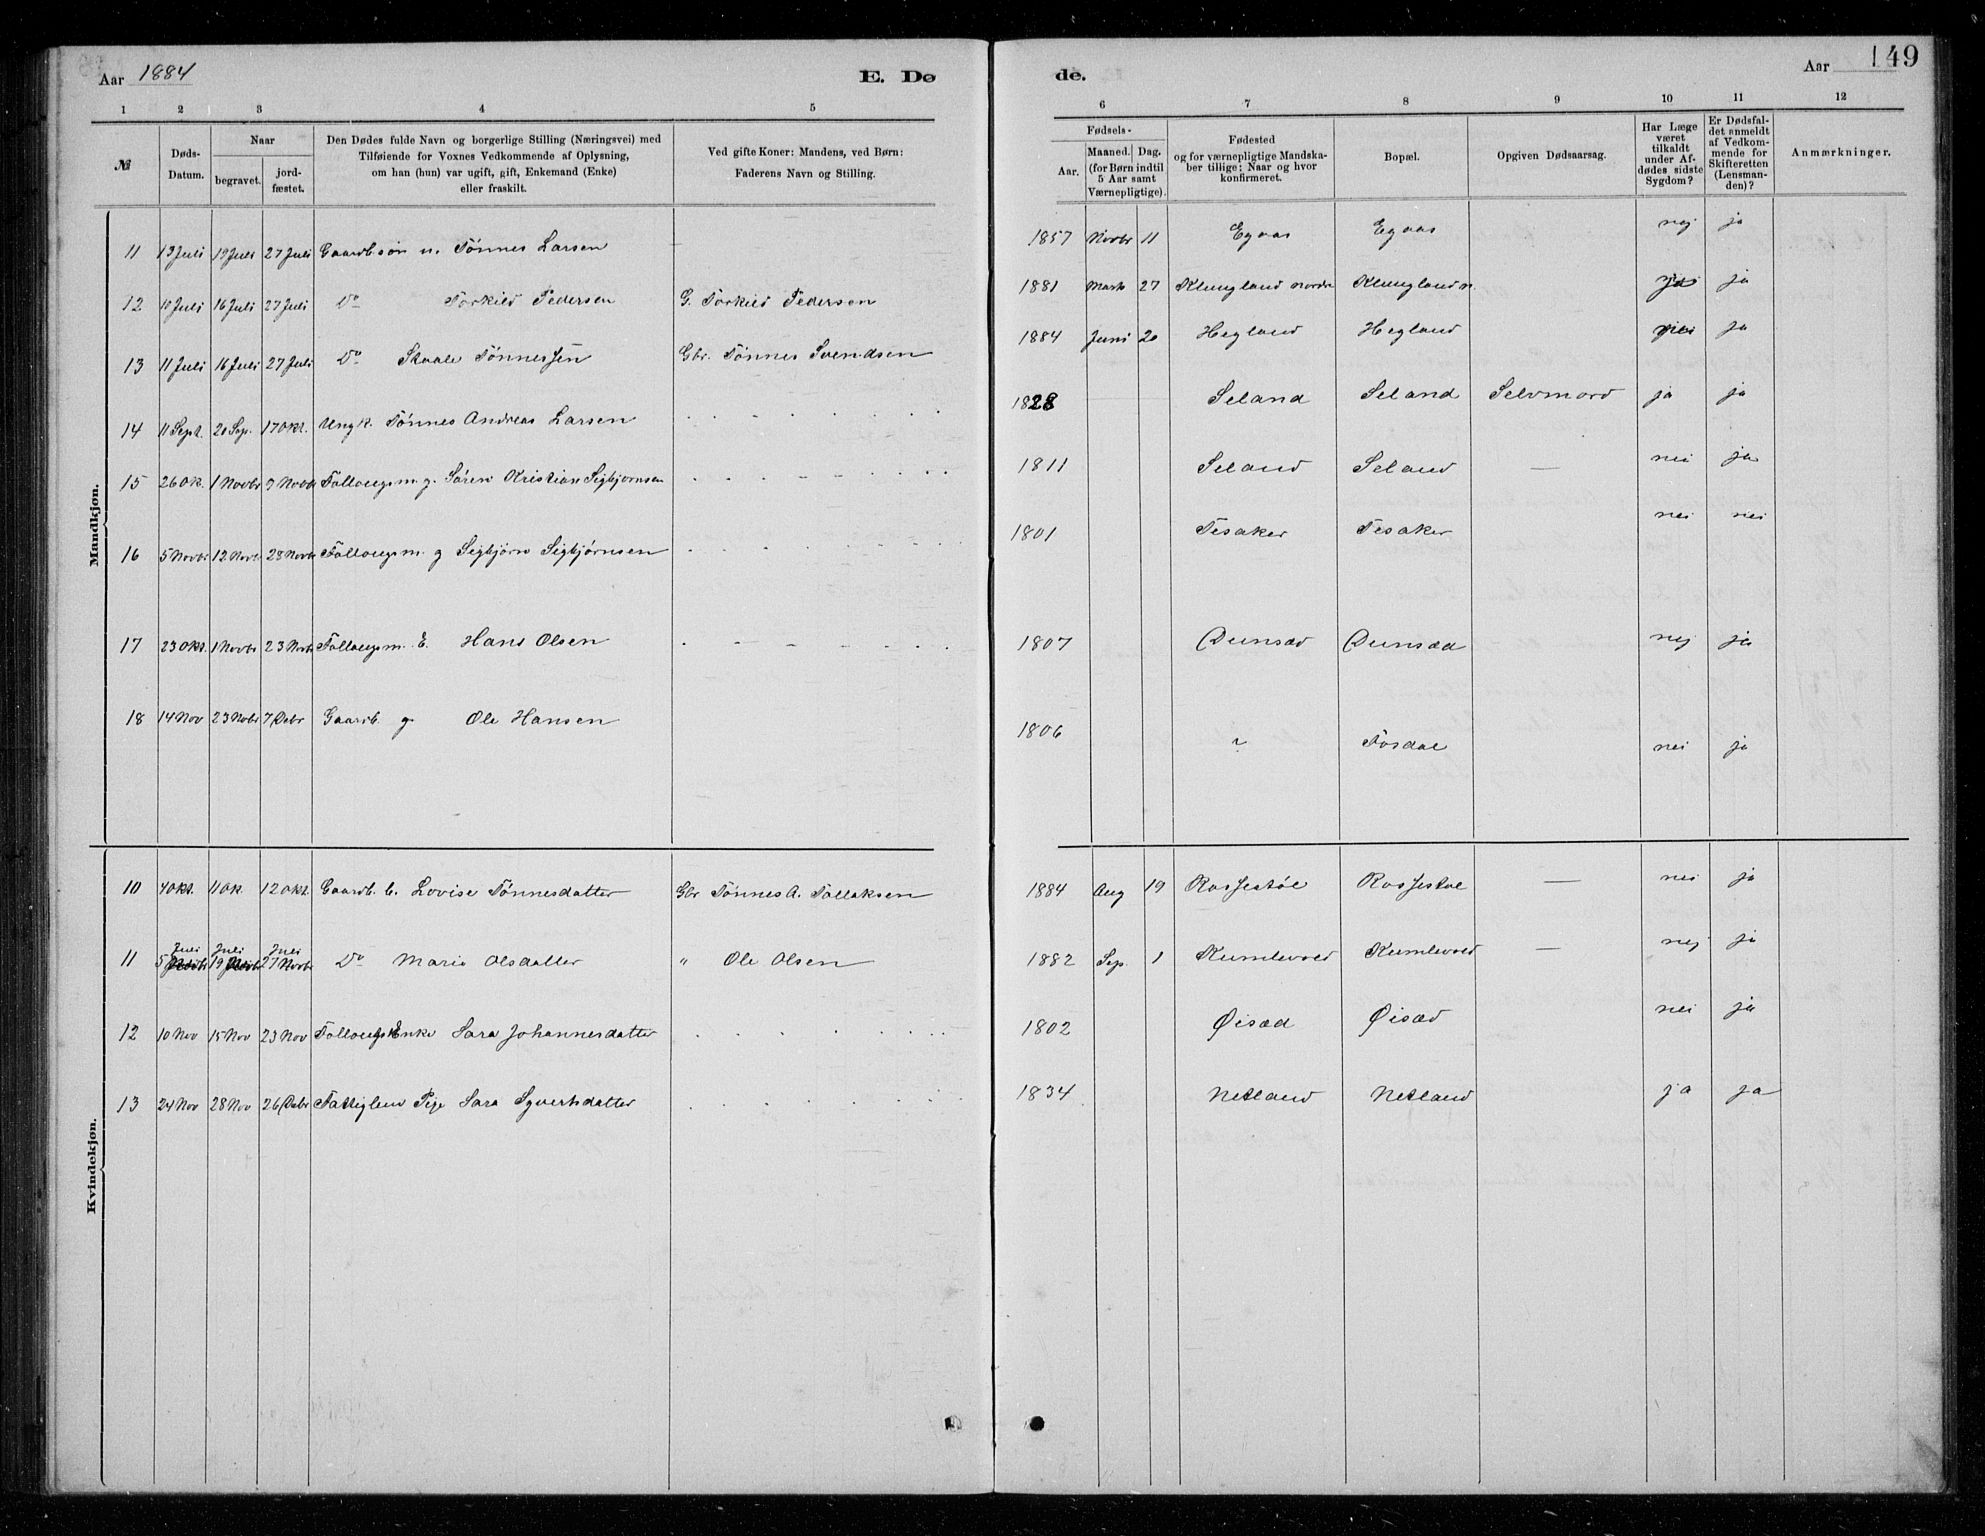 Aar 1884 E. Dø de. Aar 149
1 2 3 4 5 6 7 8 9 10 11 12
№ Døds-Datum. Naar begravet. jord-fæstet. Den Dødes fulde Navn og borgerlige Stilling (Næringsvei) med Tilføiende for Voxnes Vedkommende af Oplysning, om han (hun) var ugift, gift, Enkemand (Enke) eller fraskilt. Ved gifte Koner: Mandens, ved Børn: Faderens Navn og Stilling. Fødsels- Aar. Maaned. Dag. (for Børn indtil 5 Aar samt Værnepligtige). Fødested og for værnepligtige Mandskaber tillige: Naar og hvor konfirmeret. Bopæl. Opgiven Dødsaarsag. Har Læge været tilkaldt under Afdødes sidste Sygdom? Er Dødsfaldet anmeldt af Vedkommende for Skifteretten (Lensmanden)? Anmærkninger.
Mandkjøn.
11 13 Juli 19 Juli 27 Juli Gaardb.søn u. Tønnes Larsen — 1857 Novbr 11 Egaas Egaas nej ja
12 10 Juli 16 Juli 27 Juli Do Torkild Pedersen G. Torkild Pedersen 1881 Marts 27 Klungland nordre Klungland n. ja
13 11 Juli 16 Juli 27 Juli Do Staale Tønnessen Gbr. Tønnes Svendsen 1884 Juni 20 Hegland Hegland nei ja
14 11 Sept. 20 Sep. 17 Okt. Ungk. Tønnes Andreas Larsen 1828 Seland Seland Selvmord ja ja
15 26 Ok. 1 Novbr 9 Novb Follougsm. g. Søren Kristian Sigbjørnsen 1811 Seland Seland — nei ja
16 5 Novbr 12 Novb 23 Novb Follougsm. g Sigbjørn Sigbjørnsen 1801 Tesaker Tesaker nei nei
17 23 Okt. 1 Novbr 23 Novb Follougsm. E. Hans Olsen 1807 Dunsæd Dunsæd nej ja
18 14 Nov 23 Novbr 7 Debr Gaardb. g. Ole Hansen 1806 Fosdal nei ja
Kvindekjøn.
10 4 Okt. 11 Ok 12 Okt. Gaardb. b. Lovise Tønnesdatter Gbr Tønnes A. Tollaksen 1884 Aug 19 Rossestøl Rossestøl — nei ja
11 5 Juli 19 Juli 27 Juli Do Marie Olsdatter " Ole Olsen 1882 Sep. 1 Kumlevold Kumlevold — nej ja
12 10 Nov 15 Nov 23 Nov Follougs Enke Sara Johannesdatter 1802 Øisæd Øisæd nei ja
13 24 Nov 28 Nov 26 Debr Fattiglem Pige Sara Syvertsdatter 1834 Netland Netland ja ja